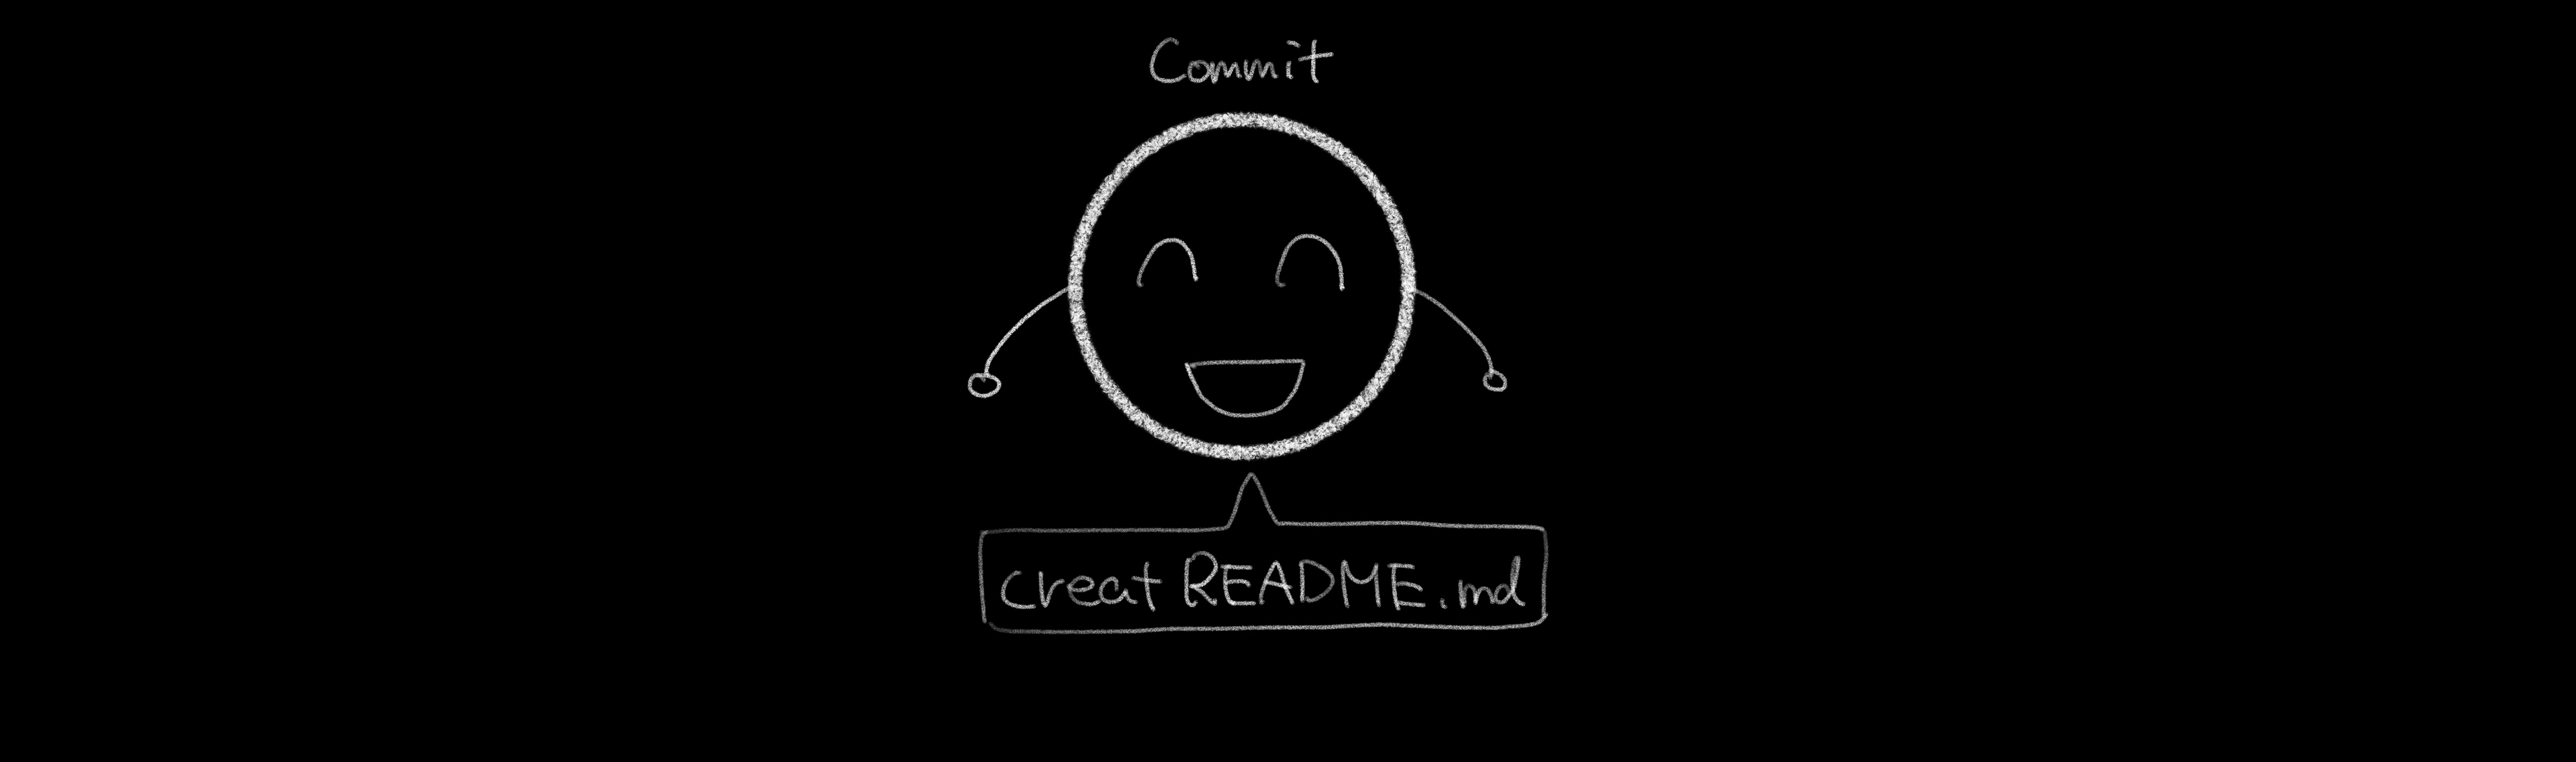 Commit
creat README.md